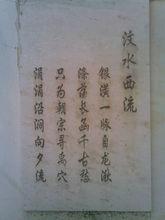 汶水西流
银汉一脉自龙湫
涤荡长空千古愁
只为朝宗寻禹穴
涓涓沿涧向夕流